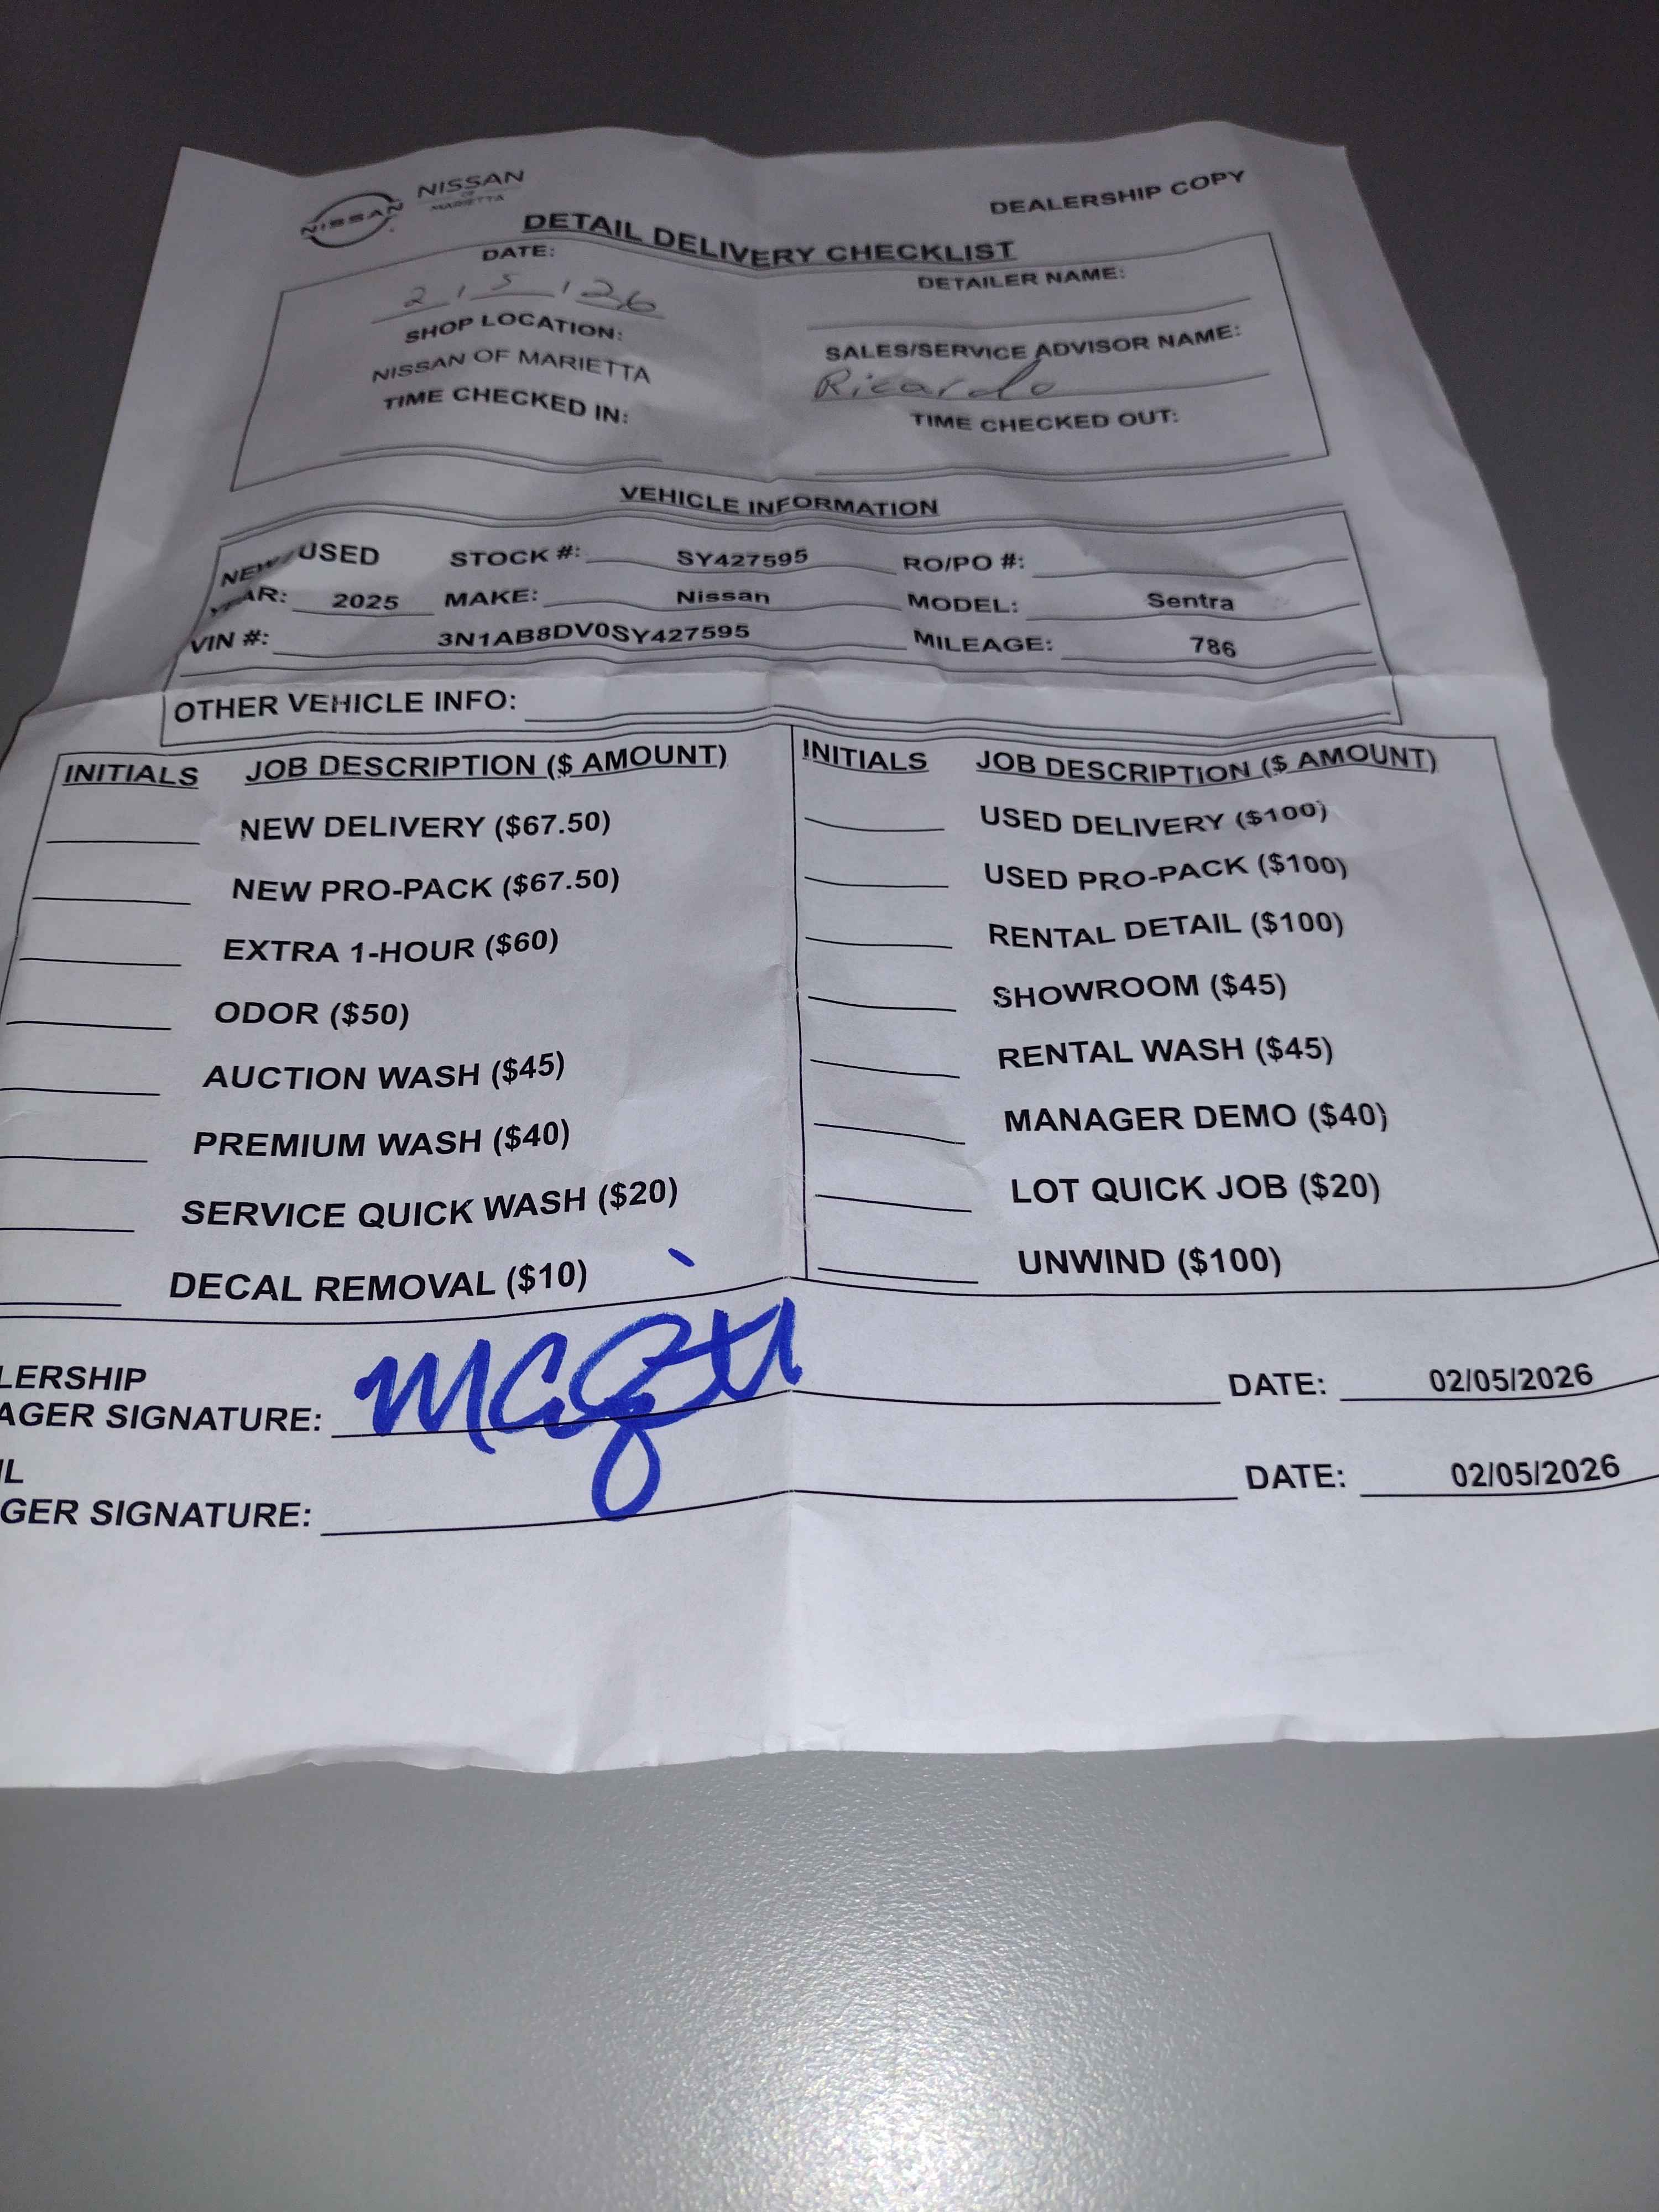 NISSAN
NISSAN
OF
MARIETTA
DEALERSHIP COPY
DETAIL DELIVERY CHECKLIST
DATE:
2 / 5 / 26
DETAILER NAME:
SHOP LOCATION:
NISSAN OF MARIETTA
SALES/SERVICE ADVISOR NAME:
Ricardo
TIME CHECKED IN:
TIME CHECKED OUT:
VEHICLE INFORMATION
NEW/USED STOCK #: SY427595 RO/PO #:
YEAR: 2025 MAKE: Nissan MODEL: Sentra
VIN #: 3N1AB8DV0SY427595 MILEAGE: 786
OTHER VEHICLE INFO:
INITIALS JOB DESCRIPTION ($ AMOUNT) INITIALS JOB DESCRIPTION ($ AMOUNT)
NEW DELIVERY ($67.50) USED DELIVERY ($100)
NEW PRO-PACK ($67.50) USED PRO-PACK ($100)
EXTRA 1-HOUR ($60) RENTAL DETAIL ($100)
ODOR ($50) SHOWROOM ($45)
AUCTION WASH ($45) RENTAL WASH ($45)
PREMIUM WASH ($40) MANAGER DEMO ($40)
SERVICE QUICK WASH ($20) LOT QUICK JOB ($20)
DECAL REMOVAL ($10) UNWIND ($100)
LERSHIP
AGER SIGNATURE: DATE: 02/05/2026
IL
GER SIGNATURE: DATE: 02/05/2026